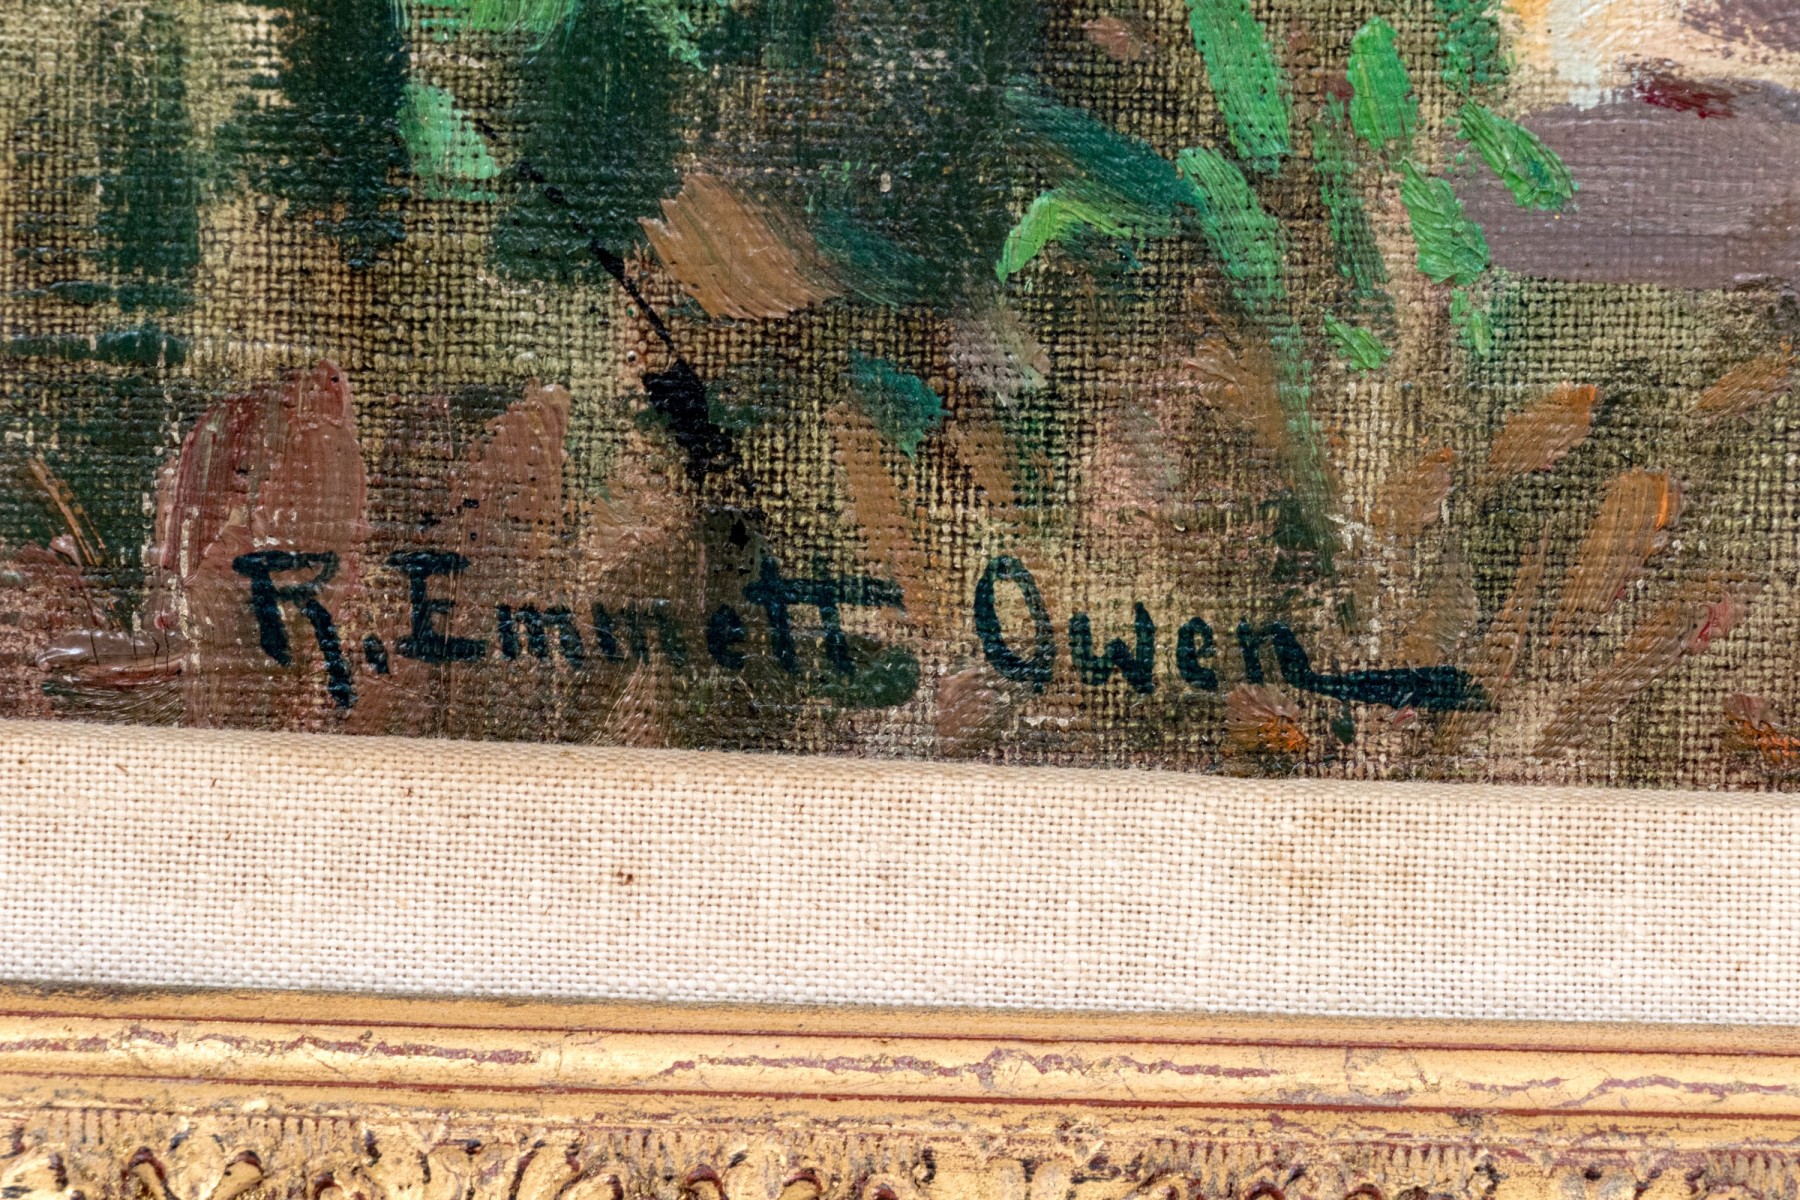 R. Emmett Owen